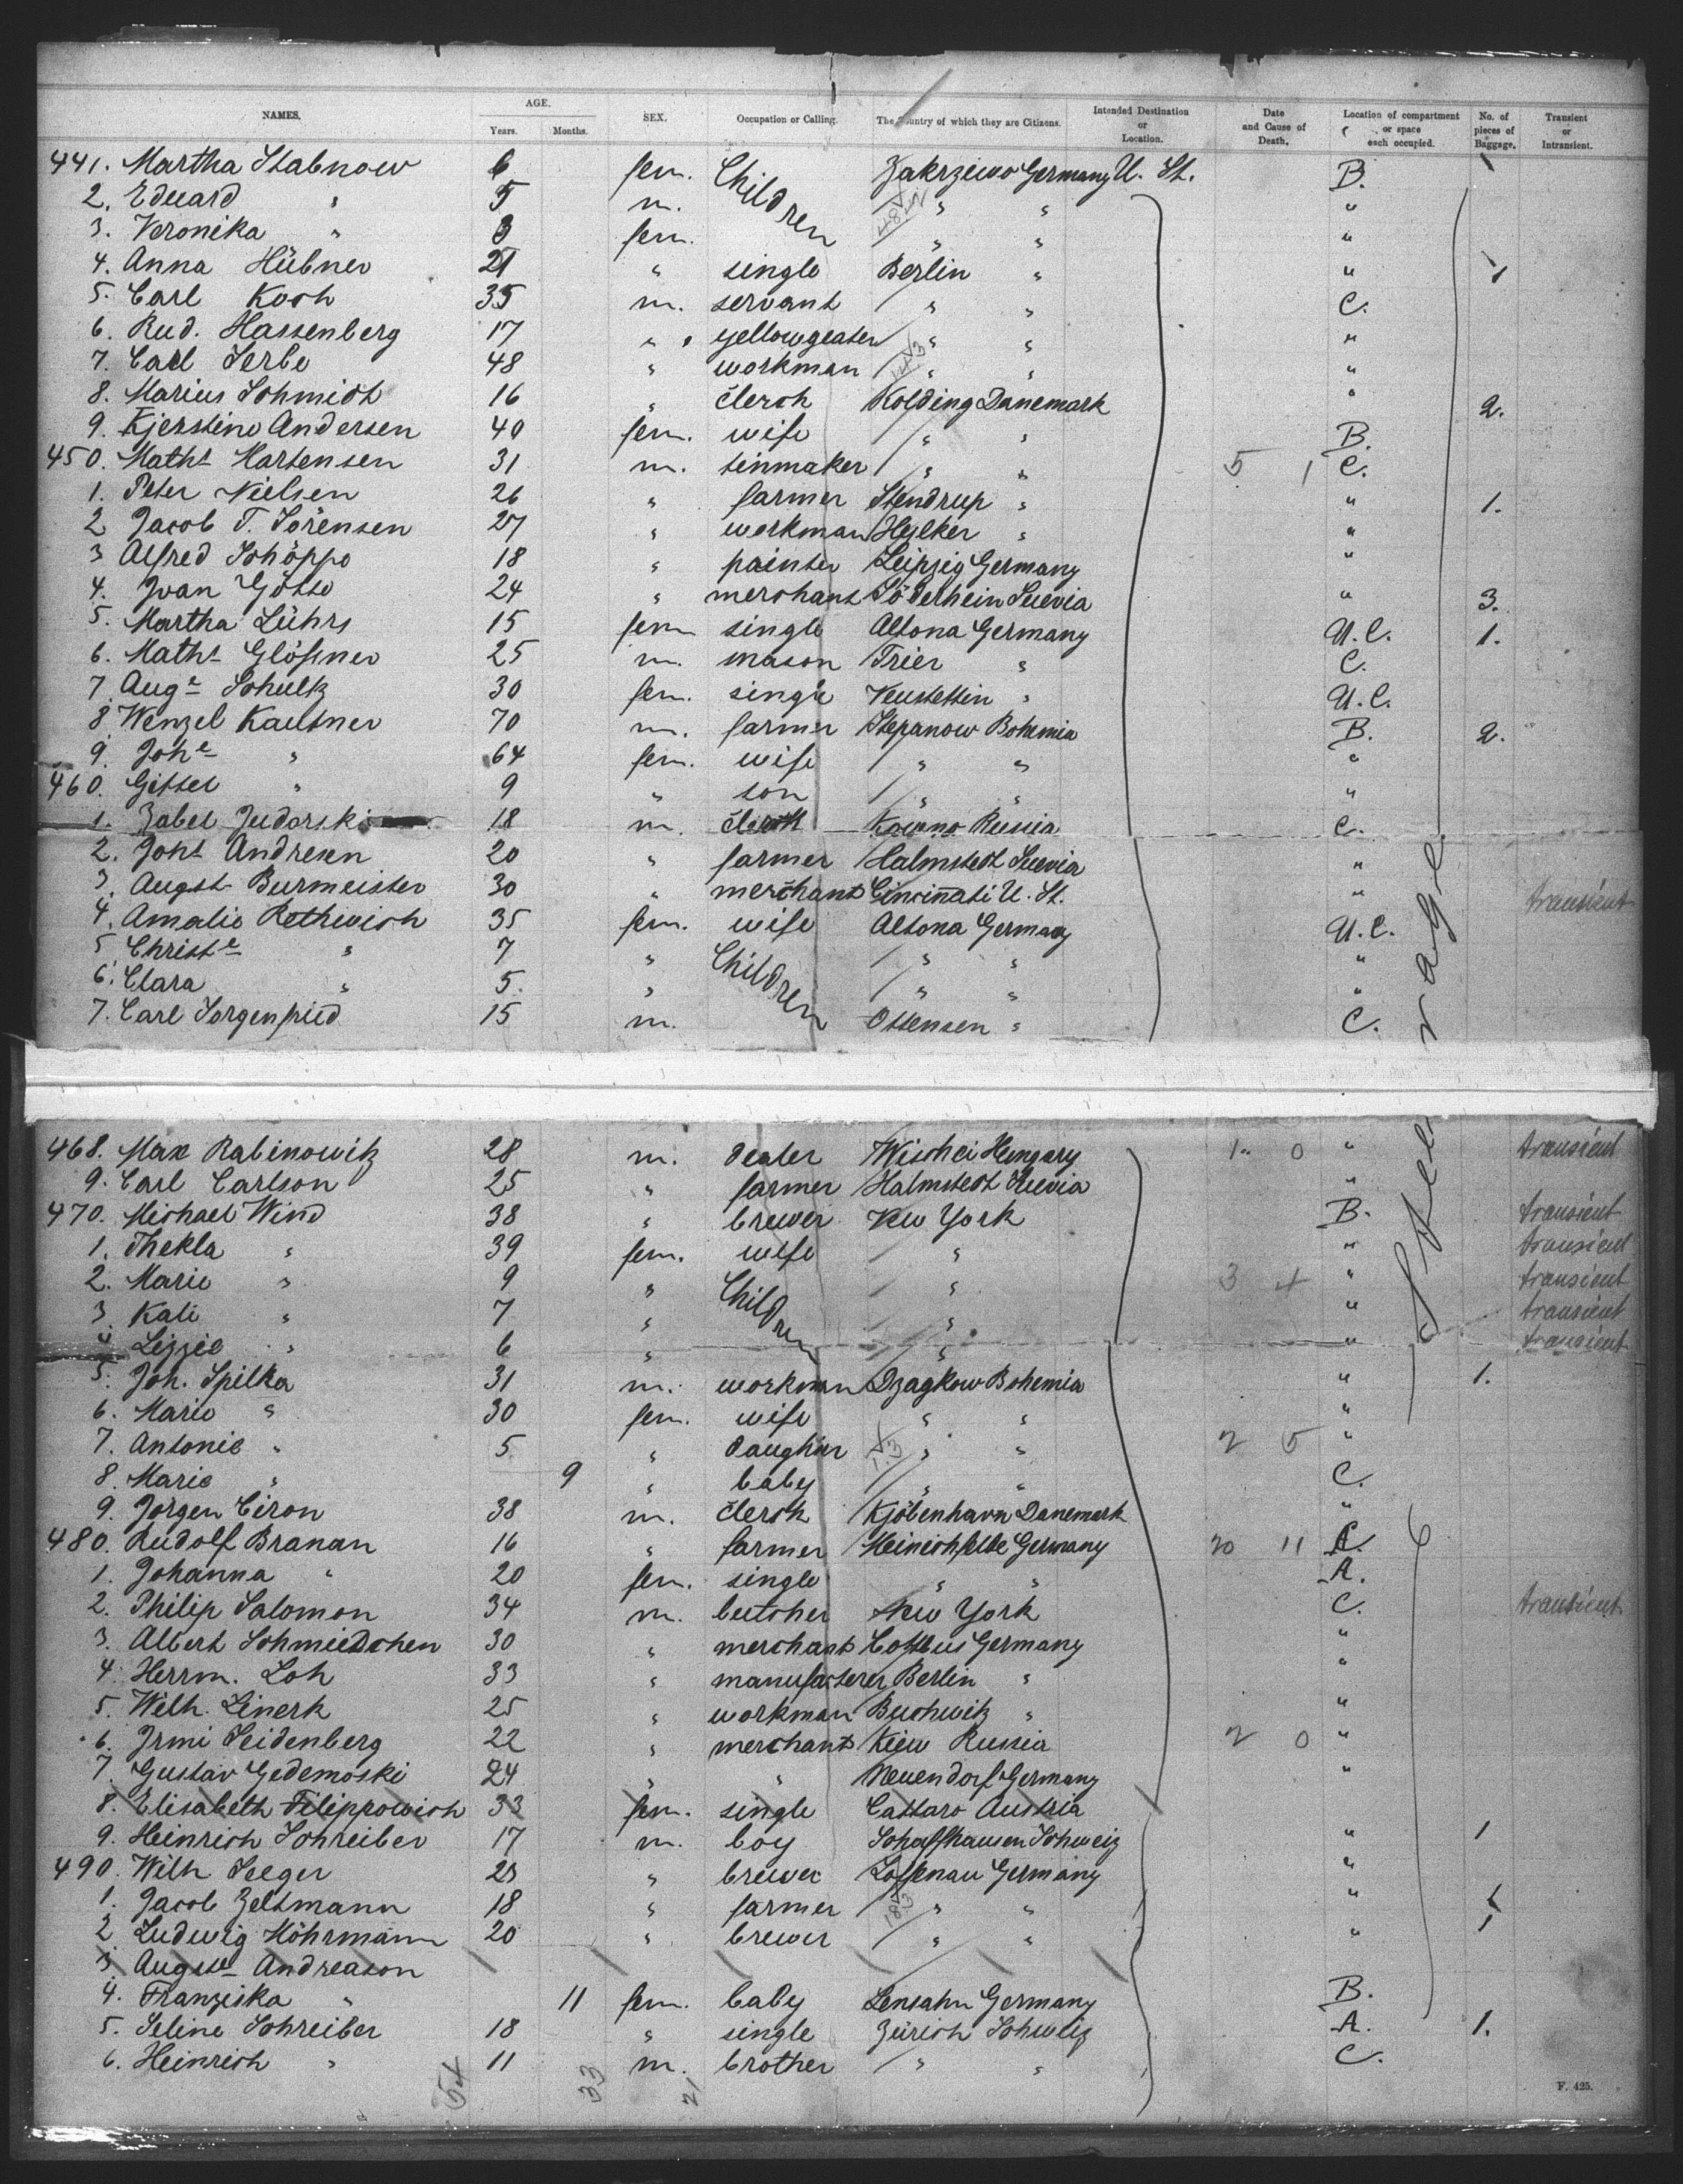 NAMES. AGE. Years. Months. SEX. Occupation or Calling. The Country of which they are Citizens. Intended Destination or Location. Date and Cause of Death. Location of compartment or space each occupied. No. of pieces of Baggage. Transient or Intransient.
441. Martha Stabnow 6 fem. Children Zakrzewo Germany U. St. B. 1
2. Eduard " 5 m. " " "
3. Veronika " 3 fem. " " "
4. Anna Hübner 21 " single Berlin " " 1
5. Carl Koch 35 m. servant " " C.
6. Rud. Hassenberg 17 " yellowgeater " " "
7. Carl Serbe 48 " workman " " "
8. Marius Schmidt 16 " clerch Kolding Danemark " 2.
9. Kjerstine Andersen 40 fem. wife " " B.
450. Maths Martensen 31 m. tinmaker " " 5 1 C.
1. Peter Nielsen 26 " farmer Stendrup " " 1.
2 Jacob T. Sörensen 27 " workman Hylker " "
3 Alfred Schöppe 18 " painter Leipzig Germany "
4. Ivan Götse 24 " merchant Söderhein Suevia " 3.
5. Martha Lührs 15 fem single Altona Germany U.C. 1.
6. Maths Glößner 25 m. mason Trier " C.
7 Auge Schultz 30 fem. single Neustettin " U.C.
8 Wenzel Kautner 70 m. farmer Stepanow Bohemia B. 2.
9. Johe " 64 fem. wife " " "
460. Gittel " 9 " son " " "
1. Zabel Judorski 18 m. clerch Kowno Russia C.
2. Johs Andresen 20 " farmer Halmstedt Suevia "
3. Augst Burmeister 30 " merchant Cincinnati U. St. " transient
4. Amalie Rethwisch 35 fem. wife Altona Germany U.C.
5 Christe " 7 " Children " " "
6. Clara " 5. " " " "
7. Carl Sorgenfried 15 m. Ottensen " C.
468. Max Rabinowitz 28 m. dealer Wischei Hungary 1 0 " transient
9. Carl Carlson 25 " farmer Halmstedt Suevia "
470. Michael Wind 38 " brewer New York B. transient
1. Thekla " 39 fem. wife " " transient
2. Marie " 9 " Children " 3 4 " transient
3. Kati " 7 " " " transient
4 Lizzie " 6 " " " transient
5. Joh. Spilka 31 m. workman Dzagkow Bohemia " 1.
6. Marie " 30 fem. wife " " "
7. Antonie " 5. " daughter " " 2 5 "
8. Marie " 9 " baby " " C.
9. Jörgen Ciron 38 m. clerch Kjöbenhavn Danemark "
480. Rudolf Branan 16 " farmer Heinichfelde Germany 20 11 C.
1. Johanna " 20 fem. single " " A.
2. Philip Salomon 34 m. butcher New York C. transient
3. Albert Schmiedchen 30 " merchant Cottbus Germany "
4. Herrm. Loh 33 " manufacterer Berlin " "
5. Wilh. Linerk 25 " workman Buchwitz " "
6. Irmi Seidenberg 22 " merchant Kiew Russia 2 0 "
7. Gustav Gedemoski 24 " " Neuendorf Germany "
8. Elisabeth Filippowich 33 fem. single Cattaro Austria
9. Heinrich Schreiber 17 m. boy Schaffhausen Schweiz " 1
490. Wilh Seeger 25 " brewer Loffenau Germany "
1. Jacob Zeltmann 18 " farmer " " " 1
2 Ludwig Möhrmann 20 " brewer " " " 1
3. Auguste Andreason
4. Franziska " 11 fem. baby Lensahn Germany B.
5. Seline Schreiber 18 " single Zürich Schweiz A. 1.
6. Heinrich " 11 m. brother " " C.
54 33 21
F. 425.